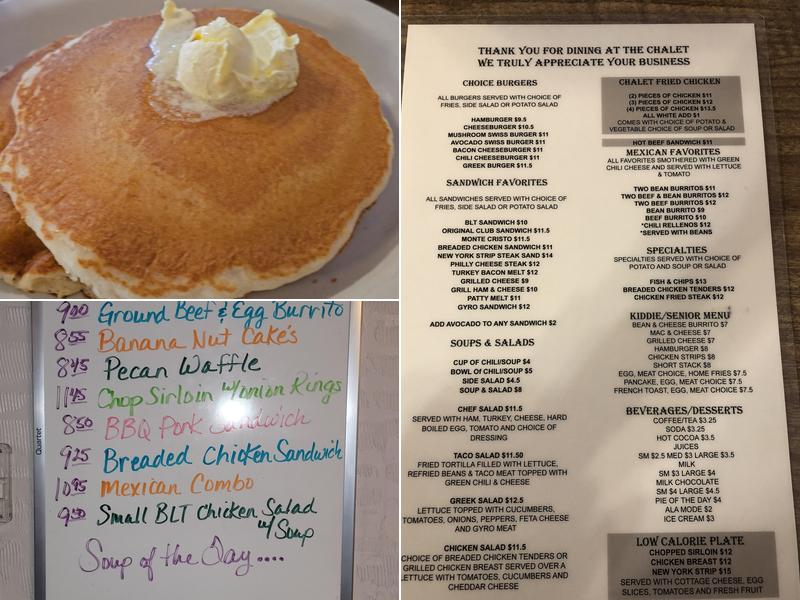 9.00 Ground Beef & Egg Burrito
8.55 Banana Nut Cake's
8.45 Pecan Waffle
11.45 Chop Sirloin w/onion Rings
8.50 BBQ Pork Sandwich
9.25 Breaded Chicken Sandwich
10.95 Mexican Combo
Small BLT Chicken Salad
w/Soup
Soup of the Day....
Quartet
THANK YOU FOR DINING AT THE CHALET
WE TRULY APPRECIATE YOUR BUSINESS
CHOICE BURGERS
ALL BURGERS SERVED WITH CHOICE OF
FRIES, SIDE SALAD OR POTATO SALAD
HAMBURGER $9.5
CHEESEBURGER $10.5
MUSHROOM SWISS BURGER $11
AVOCADO SWISS BURGER $11
BACON CHEESEBURGER $11
CHILI CHEESEBURGER $11
GREEK BURGER $11.5
SANDWICH FAVORITES
ALL SANDWICHES SERVED WITH CHOICE OF
FRIES, SIDE SALAD OR POTATO SALAD
BLT SANDWICH $10
ORIGINAL CLUB SANDWICH $11.5
MONTE CRISTO $11.5
BREADED CHICKEN SANDWICH $11
NEW YORK STRIP STEAK SAND $14
PHILLY CHEESE STEAK $12
TURKEY BACON MELT $12
GRILLED CHEESE $9
GRILL HAM & CHEESE $10
PATTY MELT $11
GYRO SANDWICH $12
ADD AVOCADO TO ANY SANDWICH $2
SOUPS & SALADS
CUP OF CHILI/SOUP $4
BOWL Of CHILI/SOUP $5
SIDE SALAD $4.5
SOUP & SALAD $8
CHEF SALAD $11.5
SERVED WITH HAM, TURKEY, CHEESE, HARD
BOILED EGG, TOMATO AND CHOICE OF
DRESSING
TACO SALAD $11.50
FRIED TORTILLA FILLED WITH LETTUCE,
REFRIED BEANS & TACO MEAT TOPPED WITH
GREEN CHILI & CHEESE
GREEK SALAD $12.5
LETTUCE TOPPED WITH CUCUMBERS,
TOMATOES, ONIONS, PEPPERS, FETA CHEESE
AND GYRO MEAT
CHICKEN SALAD $11.5
CHOICE OF BREADED CHICKEN TENDERS OR
GRILLED CHICKEN BREAST SERVED OVER A
LETTUCE WITH TOMATOES, CUCUMBERS AND
CHEDDAR CHEESE
CHALET FRIED CHICKEN
(2) PIECES OF CHICKEN $11
(3) PIECES OF CHICKEN $12
(4) PIECES OF CHICKEN $13.5
ALL WHITE ADD $1
COMES WITH CHOICE OF POTATO &
VEGETABLE CHOICE OF SOUP OR SALAD
HOT BEEF SANDWICH $11
MEXICAN FAVORITES
ALL FAVORITES SMOTHERED WITH GREEN
CHILI CHEESE AND SERVED WITH LETTUCE
& TOMATO
TWO BEAN BURRITOS $11
TWO BEEF & BEAN BURRITOS $12
TWO BEEF BURRITOS $12
BEAN BURRITO $9
BEEF BURRITO $10
*CHILI RELLENOS $12
*SERVED WITH BEANS
SPECIALTIES
SPECIALTIES SERVED WITH CHOICE OF
POTATO AND SOUP OR SALAD
FISH & CHIPS $13
BREADED CHICKEN TENDERS $12
CHICKEN FRIED STEAK $12
KIDDIE/SENIOR MENU
BEAN & CHEESE BURRITO $7
MAC & CHEESE $7
GRILLED CHEESE $7
HAMBURGER $8
CHICKEN STRIPS $8
SHORT STACK $8
EGG, MEAT CHOICE, HOME FRIES $7.5
PANCAKE, EGG, MEAT CHOICE $7.5
FRENCH TOAST, EGG, MEAT CHOICE $7.5
BEVERAGES/DESSERTS
COFFEE/TEA $3.25
SODA $3.25
HOT COCOA $3.5
JUICES
SM $2.5 MED $3 LARGE $3.5
MILK
SM $3 LARGE $4
MILK CHOCOLATE
SM $4 LARGE $4.5
PIE OF THE DAY $4
ALA MODE $2
ICE CREAM $3
LOW CALORIE PLATE
CHOPPED SIRLOIN $12
CHICKEN BREAST $12
NEW YORK STRIP $15
SERVED WITH COTTAGE CHEESE, EGG
SLICES, TOMATOES AND FRESH FRUIT